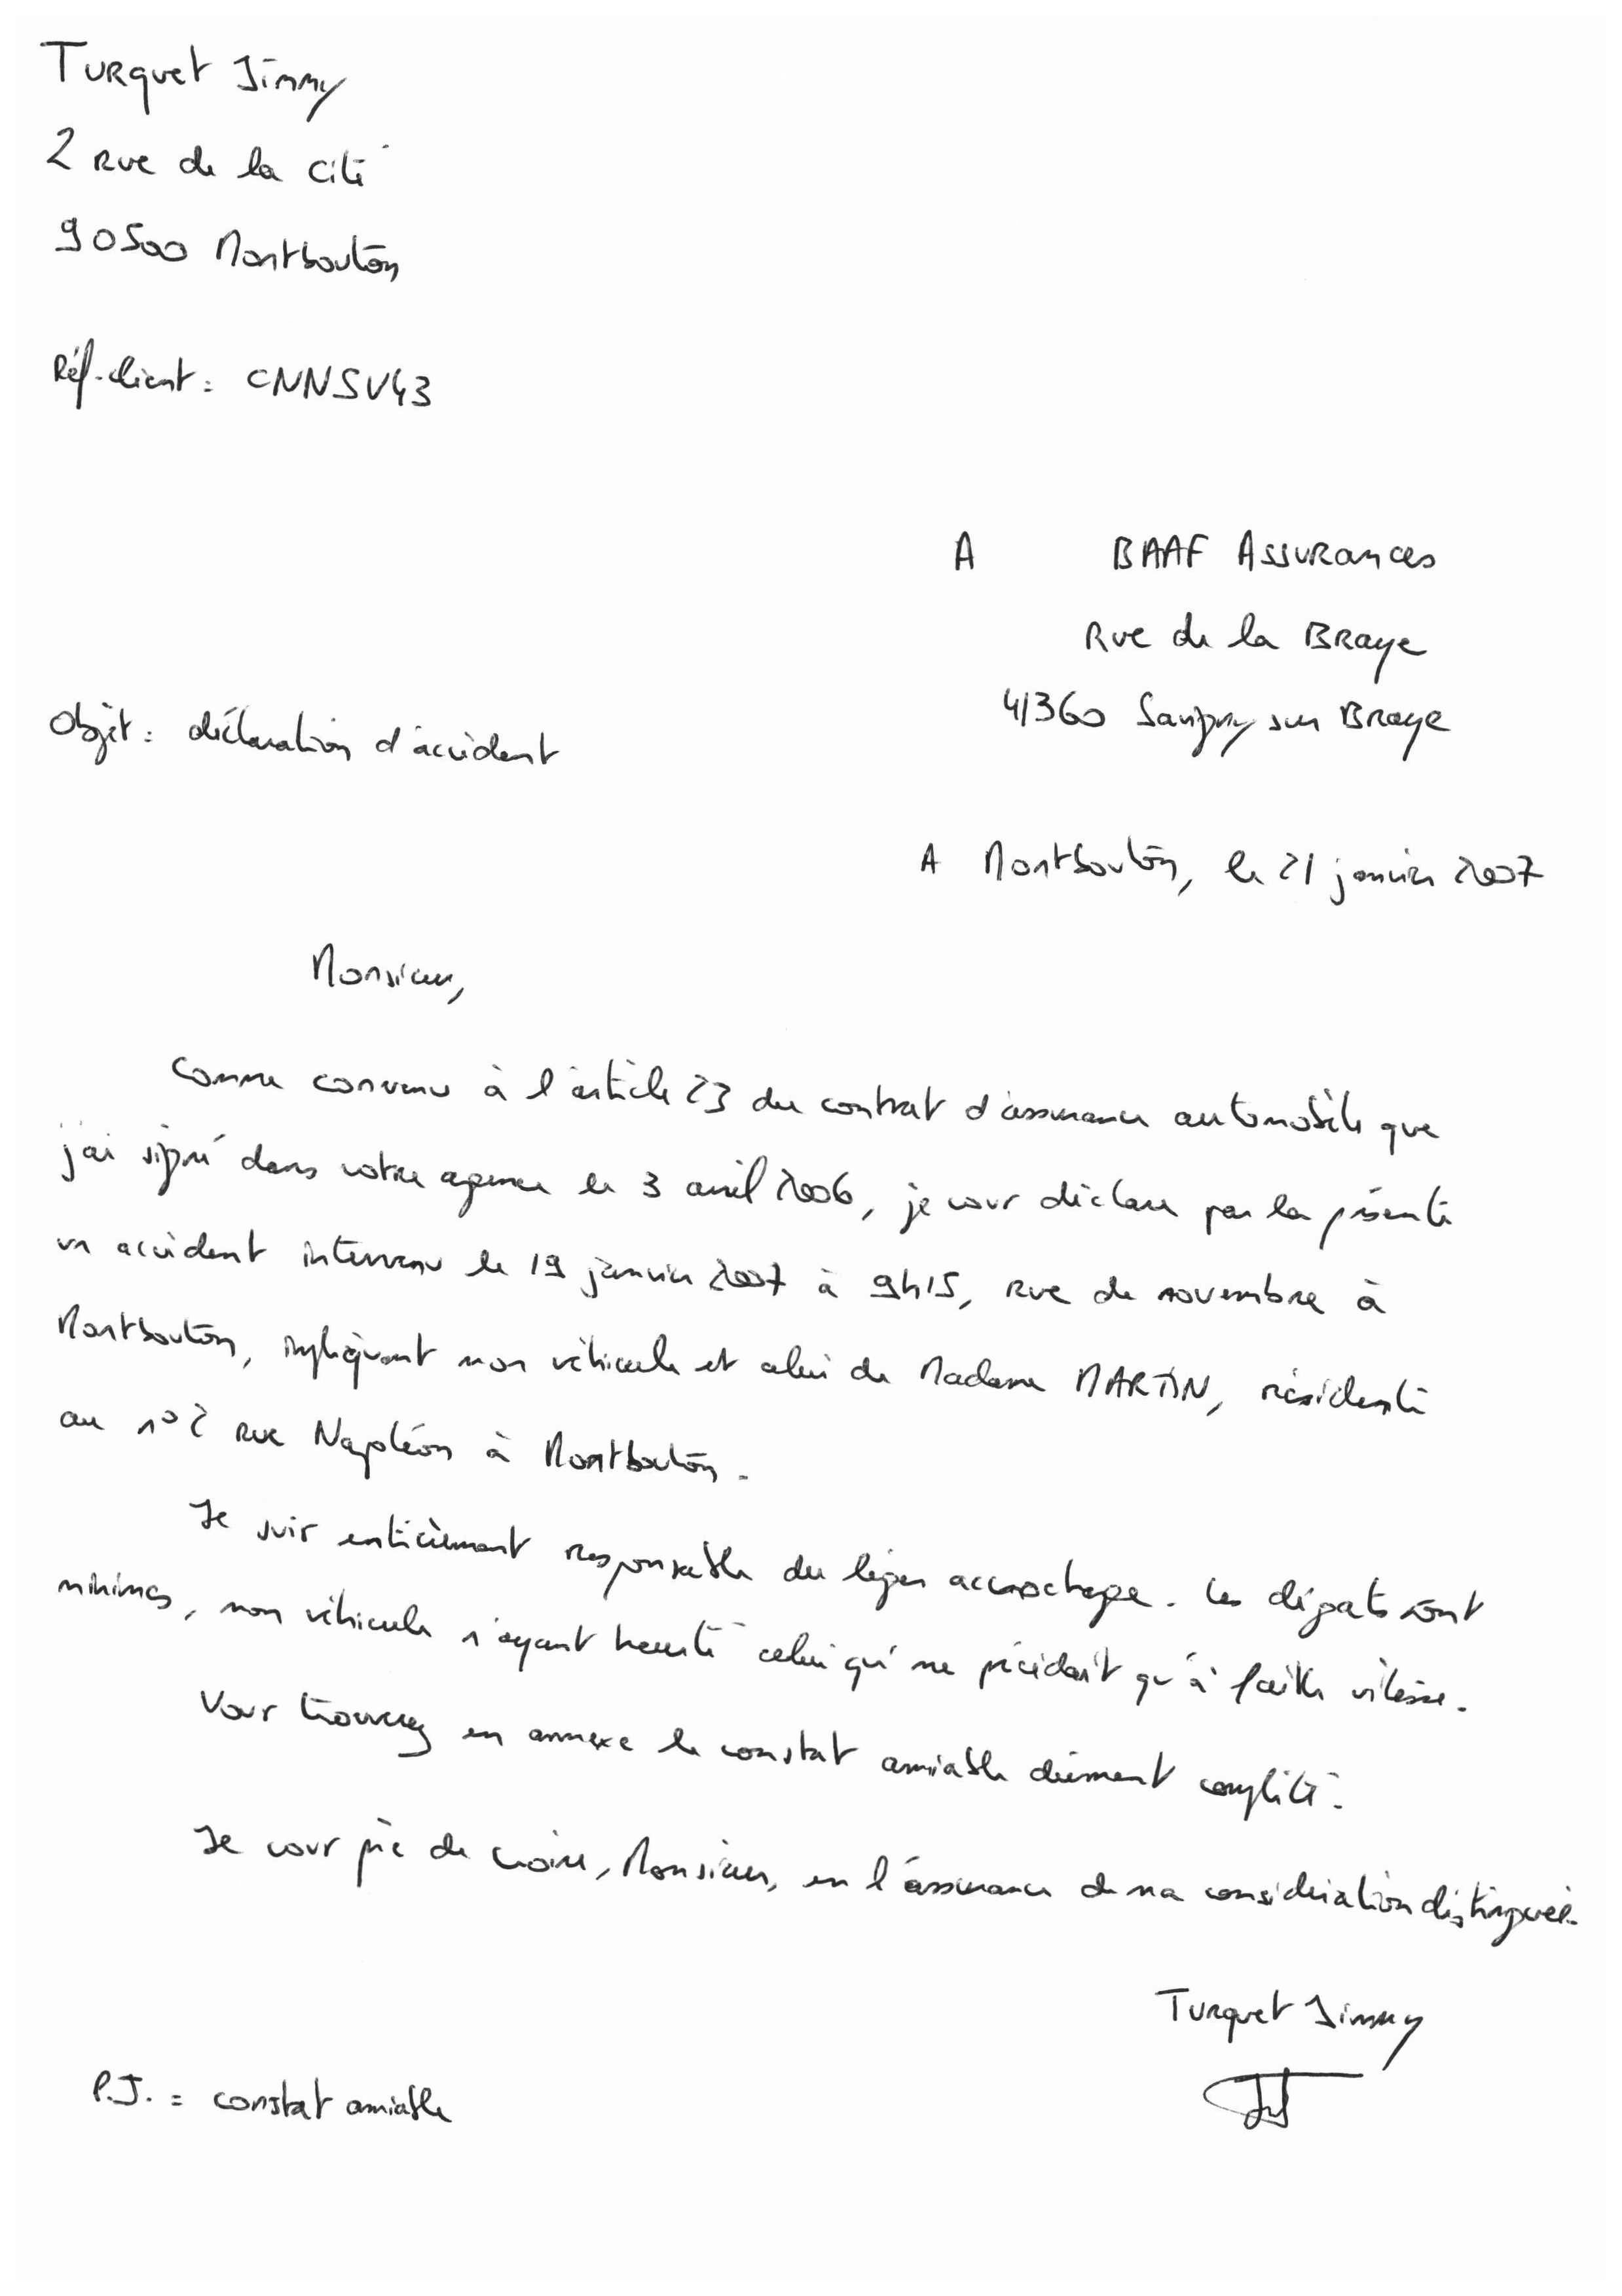 Turquet Jimmy
2 rue de la cité
90500 Montbouton
Réf.client : CNNSV43
A BAAF Assurances
Rue de la Braye
41360 Savigny sur Braye
Objet : déclaration d'accident
A Montbouton, le 21 janvier 2007
Monsieur,
Comme convenu à l'article 23 du contrat d'assurance automobile que
j'ai signé dans votre agence le 3 avril 2006, je vous déclare par la présente
un accident intervenu le 19 janvier 2007 à 9h15, rue de novembre à
Montbouton, impliquant mon véhicule et celui de Madame MARTIN, résidente
au n°2 rue Napoléon à Montbouton.
Je suis entièrement responsable du léger accrochage. Les dégats sont
minimes, mon véhicule n'ayant heurté celui qui me précédait qu'à faible vitesse.
Vous trouverez en annexe le constat amiable dûment complété.
Je vous prie de croire, Monsieur, en l'assurance de ma considération distinguée.
Turquet Jimmy
P.J. : constat amiable